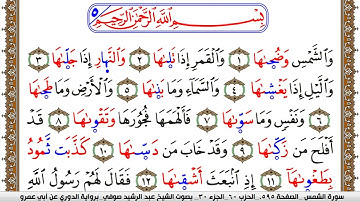 بِسْمِ اللَّهِ الرَّحْمَٰنِ الرَّحِيمِ
وَالشَّمْسِ وَضُحَىٰهَا ١ وَالْقَمَرِ إِذَا تَلَىٰهَا ٢ وَالنَّهَارِ إِذَا جَلَّىٰهَا ٣
وَالَّيْلِ إِذَا يَغْشَىٰهَا ٤ وَالسَّمَآءِ وَمَا بَنَىٰهَا ٥ وَالْأَرْضِ وَمَا طَحَىٰهَا
٦ وَنَفْسٍ وَمَا سَوَّىٰهَا ٧ فَأَلْهَمَهَا فُجُورَهَا وَتَقْوَىٰهَا ٨ قَدْ
أَفْلَحَ مَن زَكَّىٰهَا ٩ وَقَدْ خَابَ مَن دَسَّىٰهَا ١٠ كَذَّبَت ثَّمُودُ
بِطَغْوَىٰهَا ١١ إِذِ انۢبَعَثَ أَشْقَىٰهَا ١٢ فَقَالَ لَهُمْ رَسُولُ اللَّهِ
سورة الشمس . الصفحة ٥٩٥ . الحزب ٦٠ . الجزء ٣٠ . بصوت الشيخ عبد الرشيد صوفي . برواية الدوري عن أبي عمرو